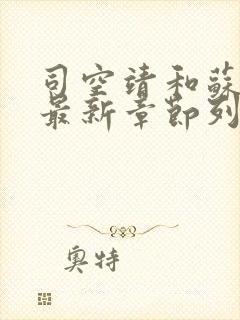 司空靖和蘇
最新章節列
奧特